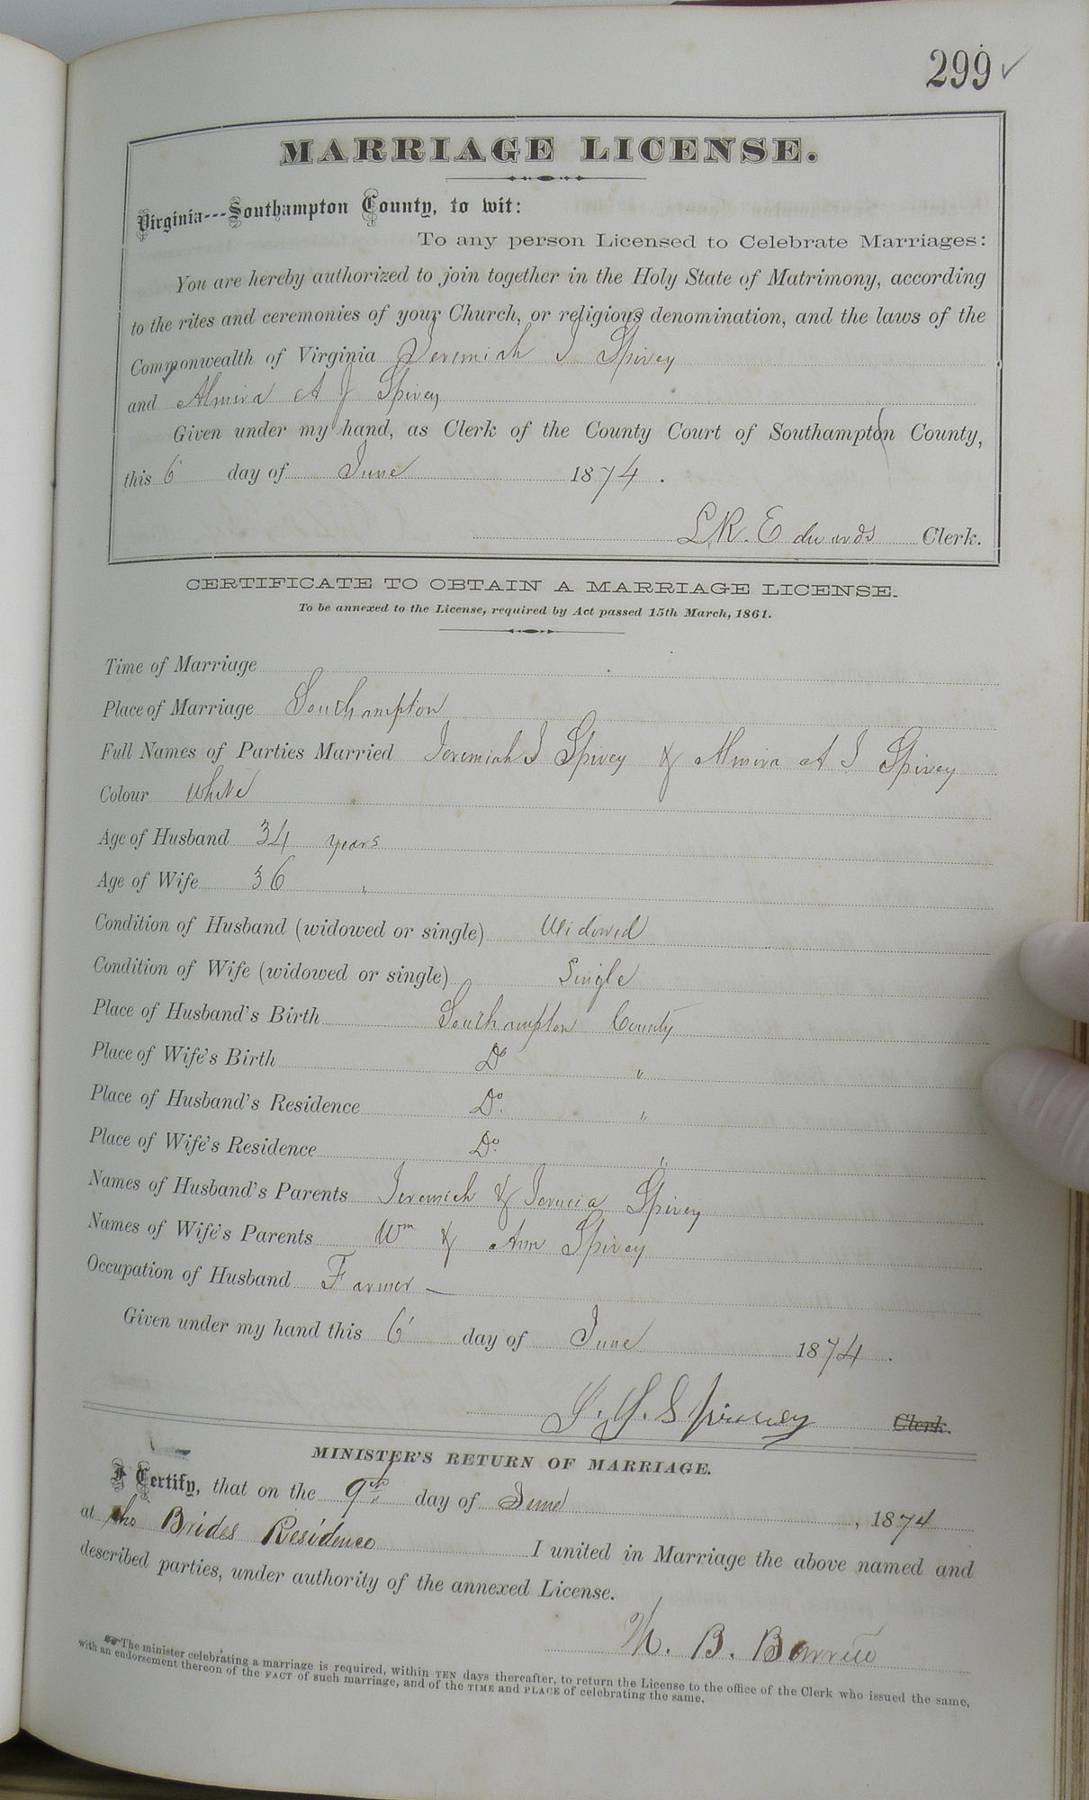 299 ✓
MARRIAGE LICENSE.
Virginia---Southampton County, to wit:
To any person Licensed to Celebrate Marriages:
You are hereby authorized to join together in the Holy State of Matrimony, according
to the rites and ceremonies of your Church, or religious denomination, and the laws of the
Commonwealth of Virginia Jeremiah J Spivey
and Almira A J Spivey
Given under my hand, as Clerk of the County Court of Southampton County,
this 6 day of June 1874.
L.R. Edwards Clerk.
CERTIFICATE TO OBTAIN A MARRIAGE LICENSE.
To be annexed to the License, required by Act passed 15th March, 1861.
Time of Marriage
Place of Marriage Southampton
Full Names of Parties Married Jeremiah J Spivey & Almira A J Spivey
Colour White
Age of Husband 34 years
Age of Wife 36 "
Condition of Husband (widowed or single) Widowed
Condition of Wife (widowed or single) Single
Place of Husband's Birth Southampton County
Place of Wife's Birth Do "
Place of Husband's Residence Do. "
Place of Wife's Residence Do. "
Names of Husband's Parents Jeremiah & Spivey
Names of Wife's Parents Wm & Ann Spivey
Occupation of Husband Farmer —
Given under my hand this 6 day of June 1874.
J. J. Spivey Clerk.
MINISTER'S RETURN OF MARRIAGE.
I Certify, that on the 9th day of June, 1874
at the Brides Residence I united in Marriage the above named and
described parties, under authority of the annexed License.
B. Barrett
☞The minister celebrating a marriage is required, within TEN days thereafter, to return the License to the office of the Clerk who issued the same,
with an endorsement thereon of the FACT of such marriage, and of the TIME and PLACE of celebrating the same.